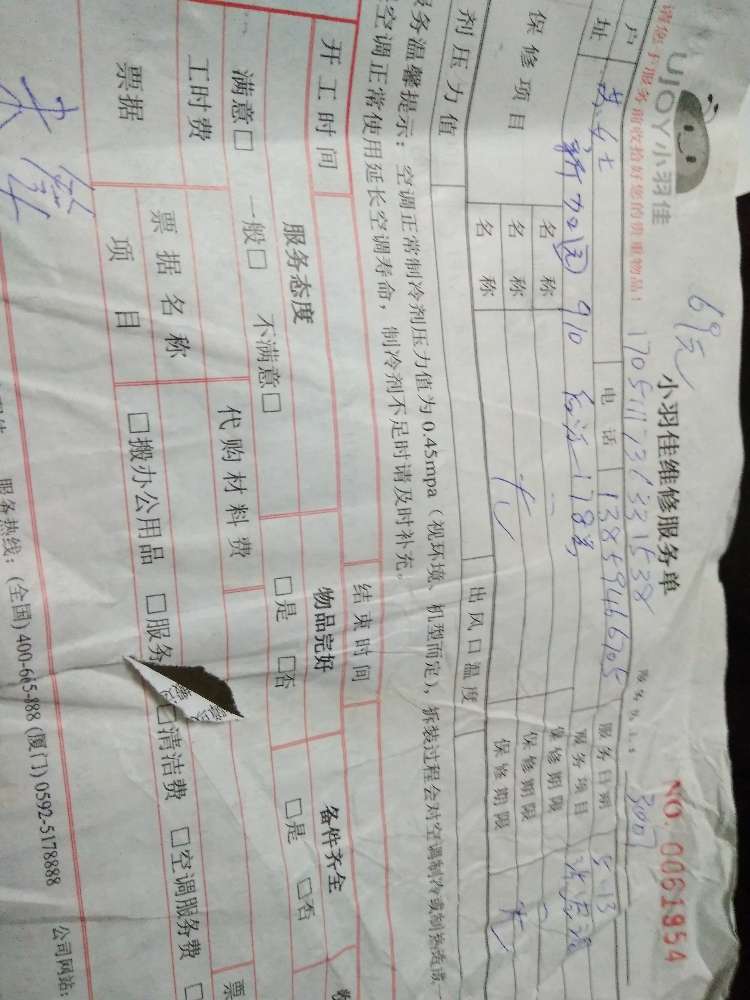 UJOY小羽佳
69元
小羽佳维修服务单
NO. 0061954
请您于服务前收拾好您的贵重物品!
服务员工:
户
电话
服务日期
5.13
址
新加园 910
178号
服务项目
保修项目
名称
保修期限
名称
保修期限
名称
无
保修期限
无
剂压力值
出风口温度
服务温馨提示: 空调正常制冷剂压力值为 0.45mpa (视环境、机型而定), 拆装过程会对空调制冷或制热造成一
空调正常使用延长空调寿命, 制冷剂不足时请及时补充。
开工时间
结束时间
服务态度
物品完好
备件齐全
满意□ 一般□ 不满意□
□是 □否
□是 □否
工时费
代购材料费
票据
票据名称
票
项目
□搬办公用品 □服务 □清洁费 □空调服务费 □
服务热线: (全国) 400-665-888 (厦门) 0592-5178888
公司网站: